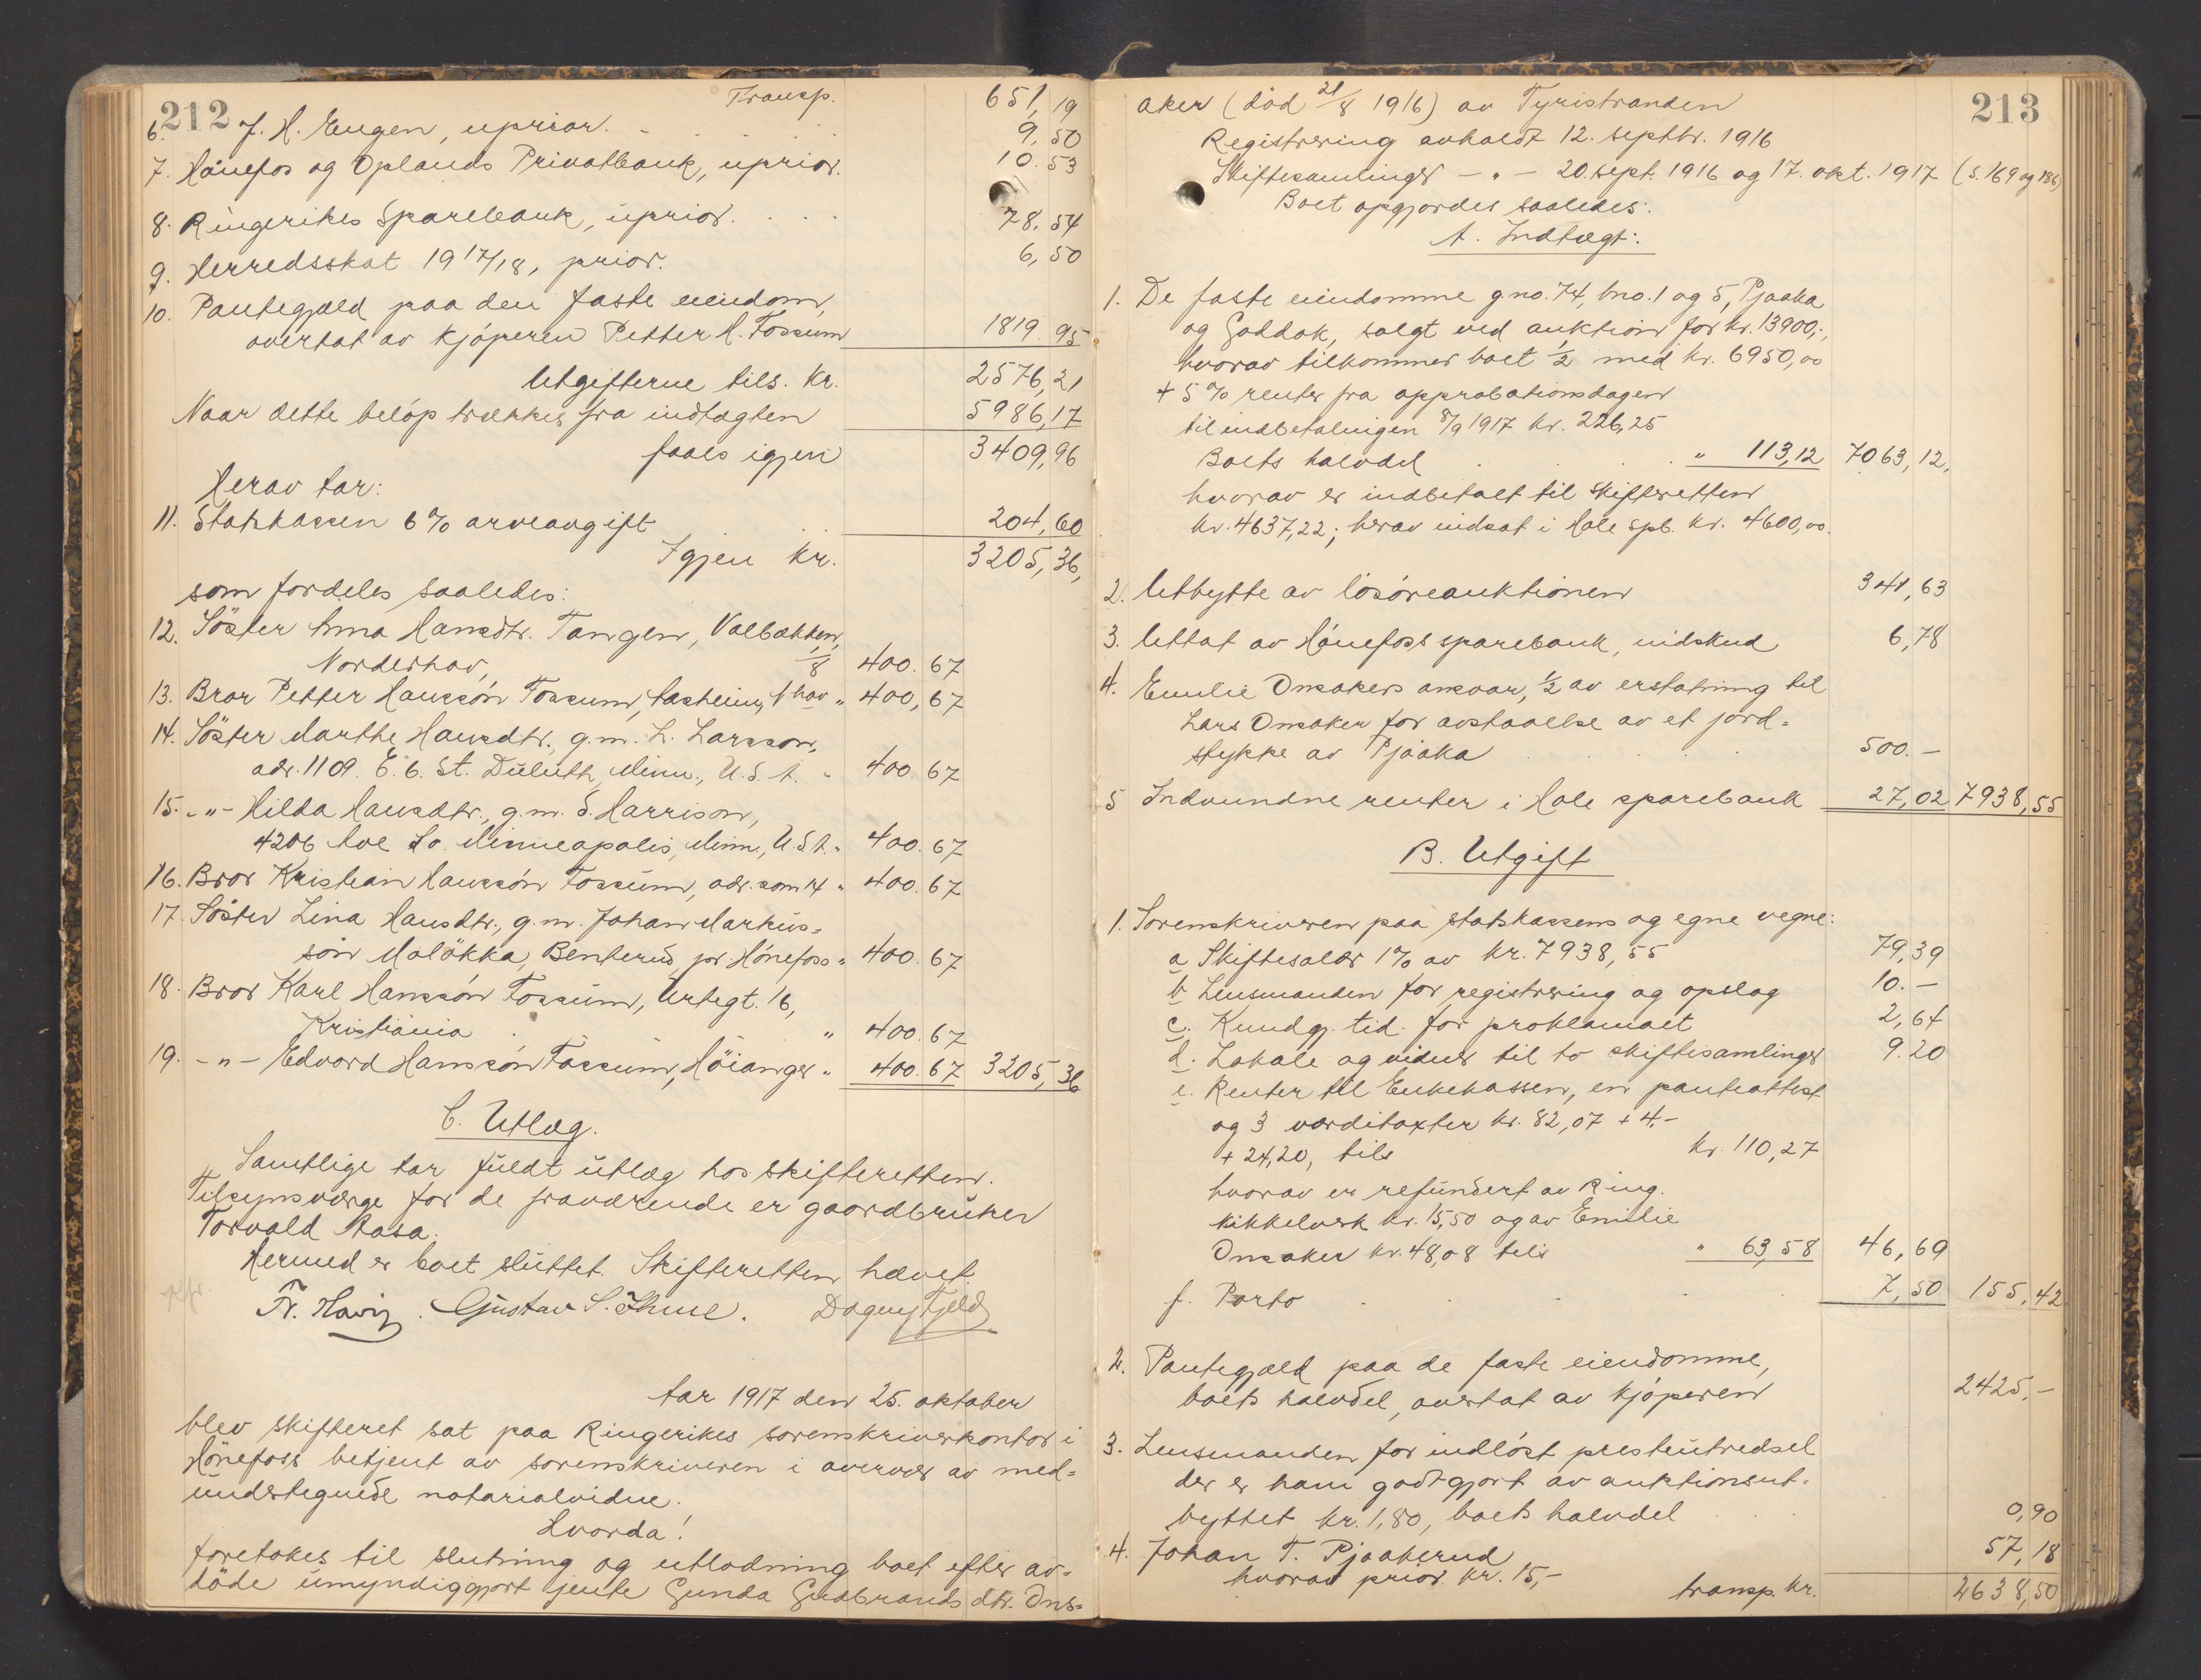 212
Transp. 651,19
6. J. H. Engen, uprior. 9,50
7. Hönefos og Oplands Privatbank, uprior. 10.53
8. Ringerikes Sparebank, uprior. 78,54
9. Herredsskat 1917/18, prior. 6,50
10. Pantegjæld paa den faste eiendom,
overtat av kjöperen Petter H. Fossum 1819.95
Utgifterne tils. kr. 2576,21
Naar dette belöp trækkes fra indtægten 5986,17
faaes igjen 3409,96
Herav tar:
11. Statskassen 6% arveavgift 204,60
Igjen kr. 3205,36,
som fordeles saaledes:
12. Söster Anna Hansdtr. Tangen, Valbækken,
Norderhov, 1/8 400.67
13. Bror Petter Hanssön Fossum, Aasheim, N hov " 400,67
14. Söster Marthe Hansdtr., g.m. L. Larsson,
adr. 1109. E. 6. St. Duluth, Minn., U.S.A. " 400.67
15. -"- Hilda Hansdtr., g.m. S. Harrison,
4206 Ave So. Minneapolis, Minn., U.S.A. " 400.67
16. Bror Kristian Hanssön Fossum, adr. som 14 " 400.67
17. Söster Lina Hansdtr., g.m. Johan Markus=
sön Molökka, Benterud pr. Hönefoss " 400.67
18. Bror Karl Hanssön Fossum, Urtegt. 16,
Kristiania " 400.67
19. -"- Edvard Hanssön Fossum, Höianger " 400.67 3205,36
C. Utlæg.
Samtlige tar fuldt utlæg hos skifteretten.
Tilsynsværge for de fraværende er gaardbruker
Torvald Aasa.
Hermed er boet sluttet. Skifteretten hævet.
Fr. Gustav S. Dagny Fjeld
Aar 1917 den 25. oktober
blev skifteret sat paa Ringerikes sorenskriverkontor i
Hönefoss betjent av sorenskriveren i overvær av med=
undertegnede notarialvidne.
Hvorda!
foretokes til slutning og utlodning boet efter av=
döde umyndiggjort jente Gunda Gudbrandsdtr. Ons=
213
aker (död 21/8 1916) av Tyristranden
Registrering avholdt 12. septbr. 1916
Skiftesamlinger -"- 20. sept. 1916 og 17. okt. 1917 (s. 169 og 186)
Boet opgjordes saaledes:
A. Indtægt:
1. De faste eiendomme gno. 74, bno. 1 og 5, Pjaaka
og Goddok, solgt ved auktion for kr. 13900,-,
hvorav tilkommer boet 1/2 med kr. 6950,00
+ 5% renter fra approbationsdagen
til indbetalingen 8/9 1917 kr. 226,25
Boets halvdel " 113,12 7063,12,
hvorav er indbetalt til skifteretten
kr. 4637,22; herav indsat i Hole spb. kr. 4600,00.
2. Utbytte av lösöreauktionen 341,63
3. Uttat av Hönefoss sparebank, indskud 6,78
4. Emilie Onsakers ansvar, 1/2 av erstatning til
Lars Onsaker for avstaaelse av et jord=
stykke av Pjaaka 500.-
5 Indvundne renter i Hole sparebank 27,02 7938,55
B. Utgift
1. Sorenskriveren paa statskassens og egne vegne:
a Skiftesalær 1% av kr. 7938,55 79,39
b Lensmanden for registrering og opslag 10.-
c. Kundgj. tid. for proklamaet 2,64
d. Lokale og vidner til to skiftesamlinger 9.20
e. Renter til Enkekassen, en panteattest
og 3 værditaxter kr. 82,07 + 4.-
+ 24,20, tils kr. 110,27
hvorav er refundert av Ring.
Nikkelverk kr. 15,50 og av Emilie
Onsaker kr. 48,08 tils " 63,58 46,69
f. Porto 7,50 155,42
2. Pantegjæld paa de faste eiendomme,
boets halvdel, overtat av kjöperen 2425,-
3. Lensmanden for indlöst presteutredsel
der er ham godtgjort av auktionsut=
byttet kr. 1,80, boets halvdel 0,90
4. Johan T. Pjaakerud 57,18
hvorav prior. kr. 15,-
transp. kr. 2638,50